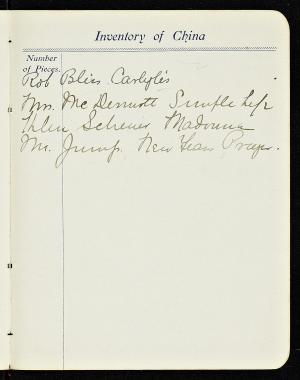 Inventory of China
Number
of Pieces.
Rob Bliss Carlyle's
Mrs. McDermott Simple Life
Helen Schreiner Madonna
Mr. Jump. New Years Prayer.